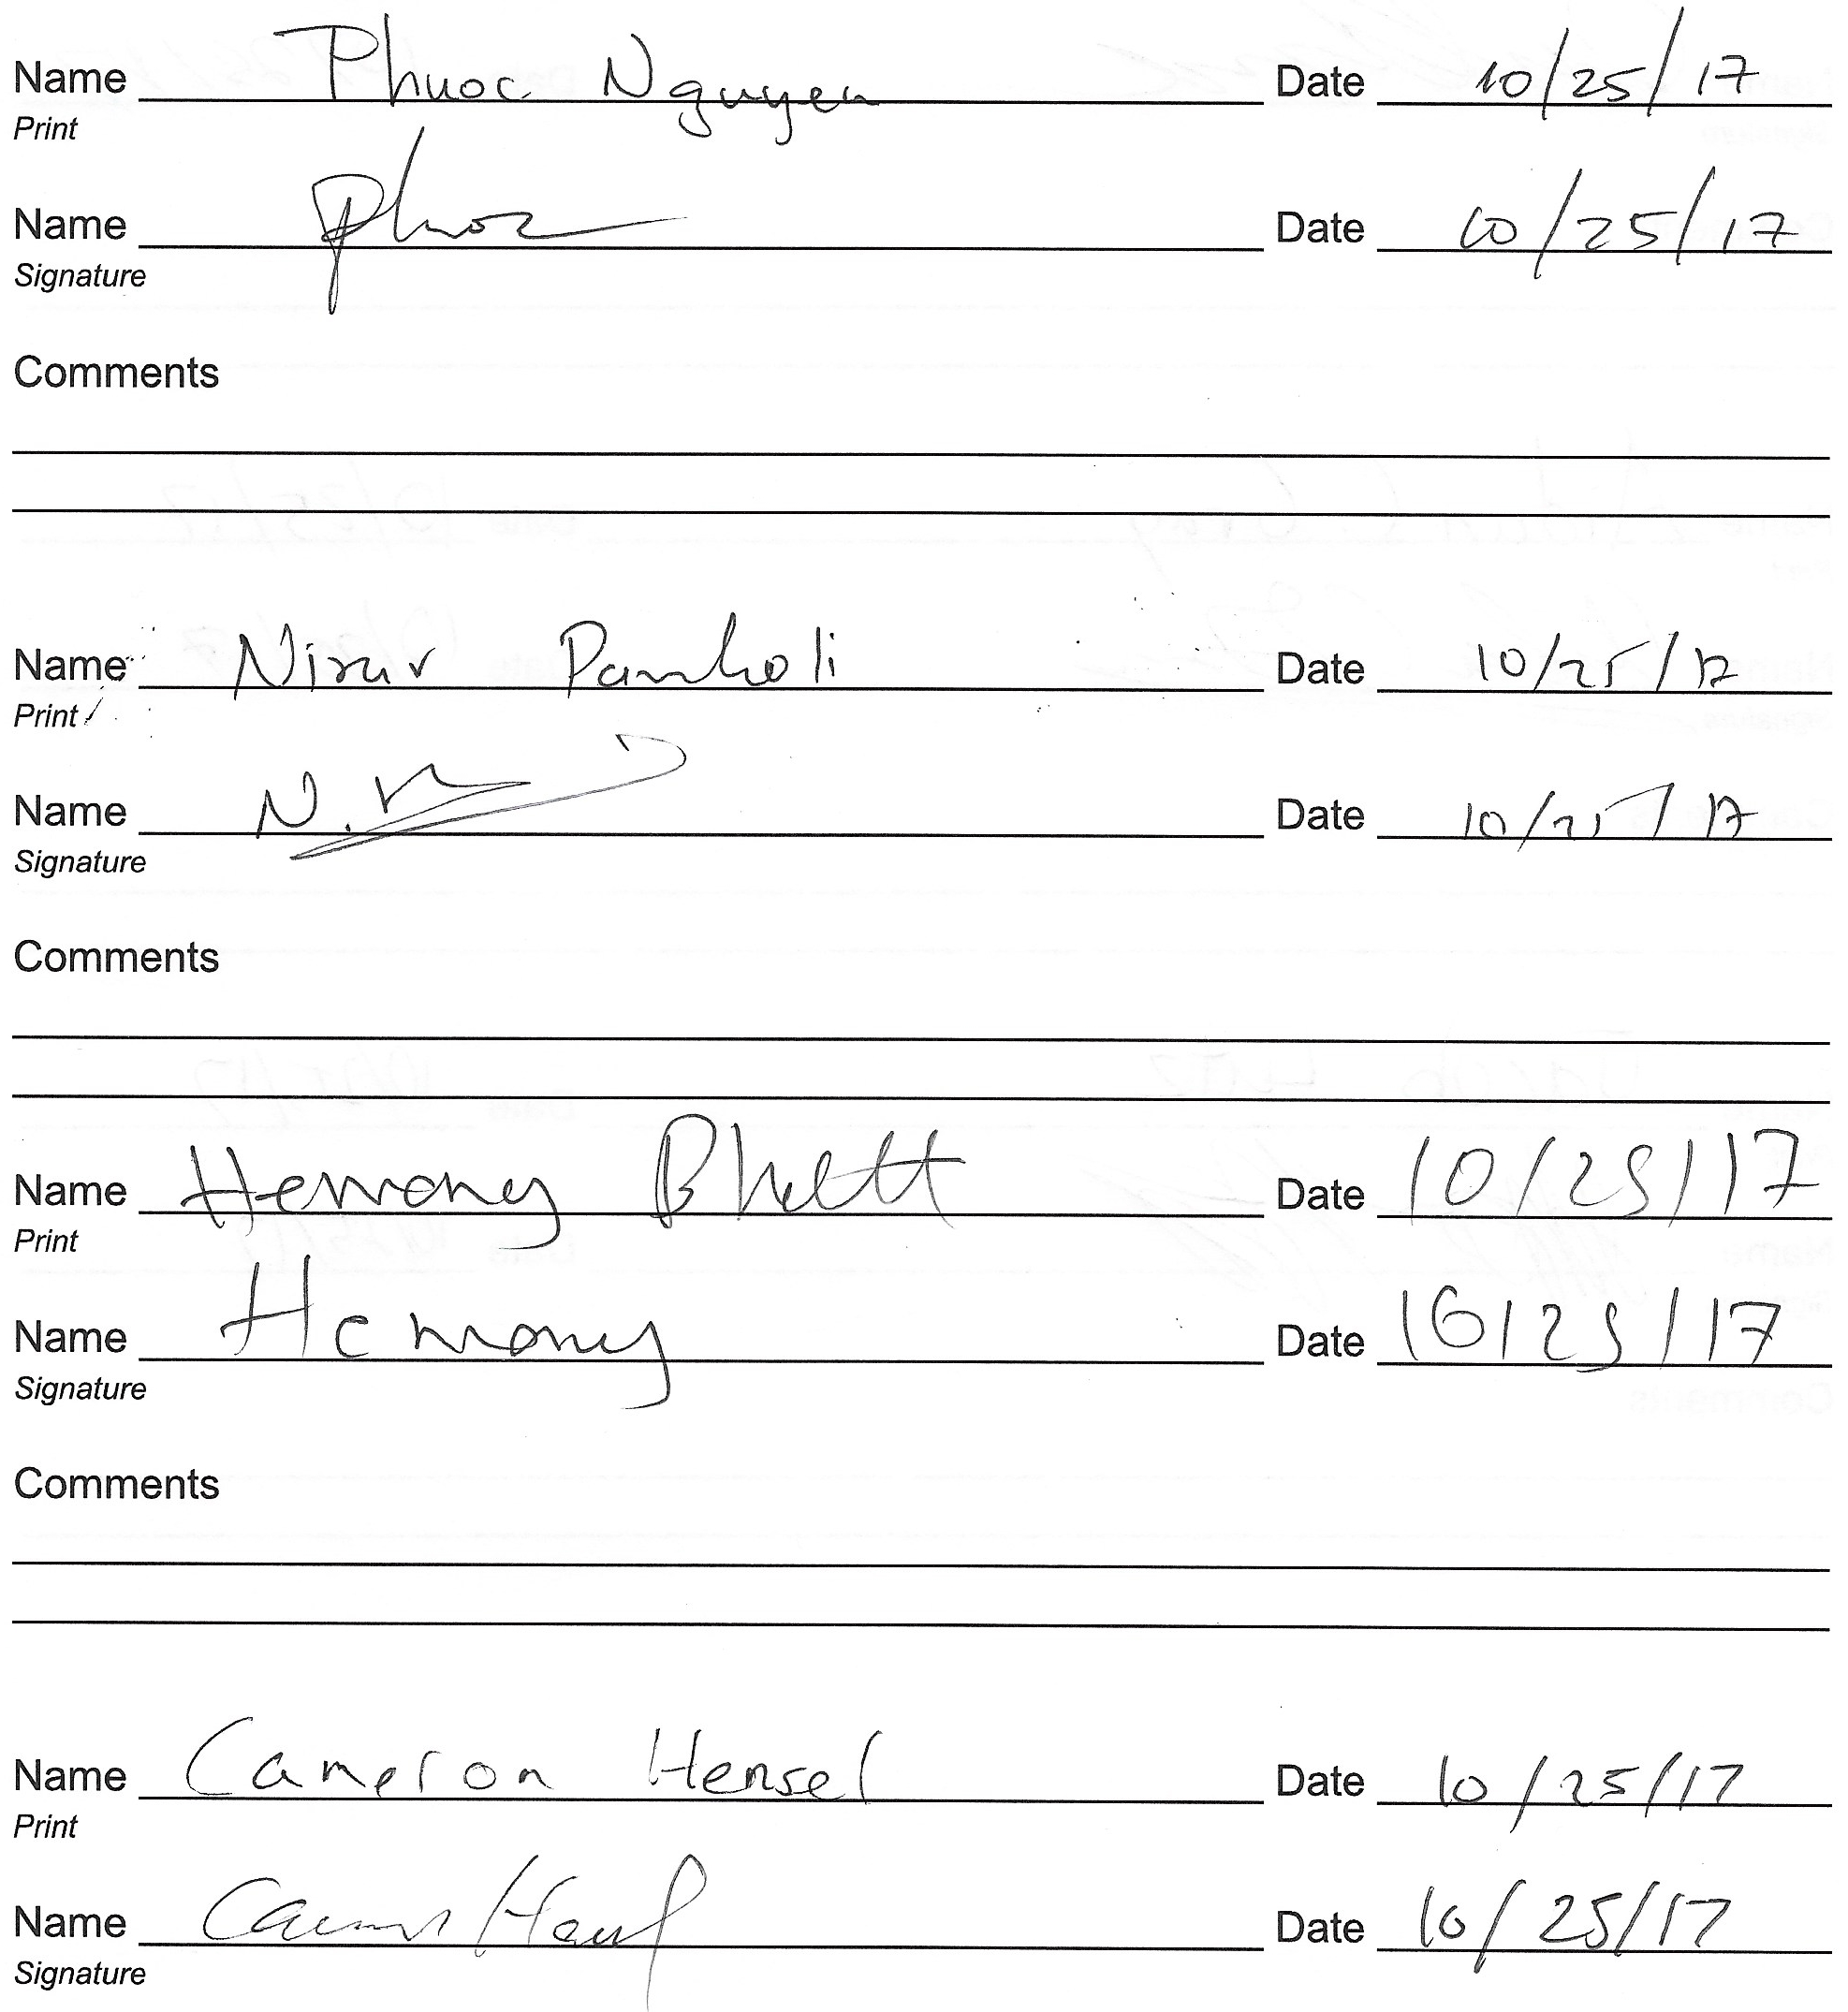 Name Phuoc Nguyen Date 10/25/17
Print
Name Phuoc Date 10/25/17
Signature
Comments
Name Nirav Pancholi Date 10/25/17
Print
Name N. Date 10/25/17
Signature
Comments
Name Hemang Bhatt Date 10/25/17
Print
Name Hemang Date 10/25/17
Signature
Comments
Name Cameron Hensel Date 10/25/17
Print
Name Date 10/25/17
Signature